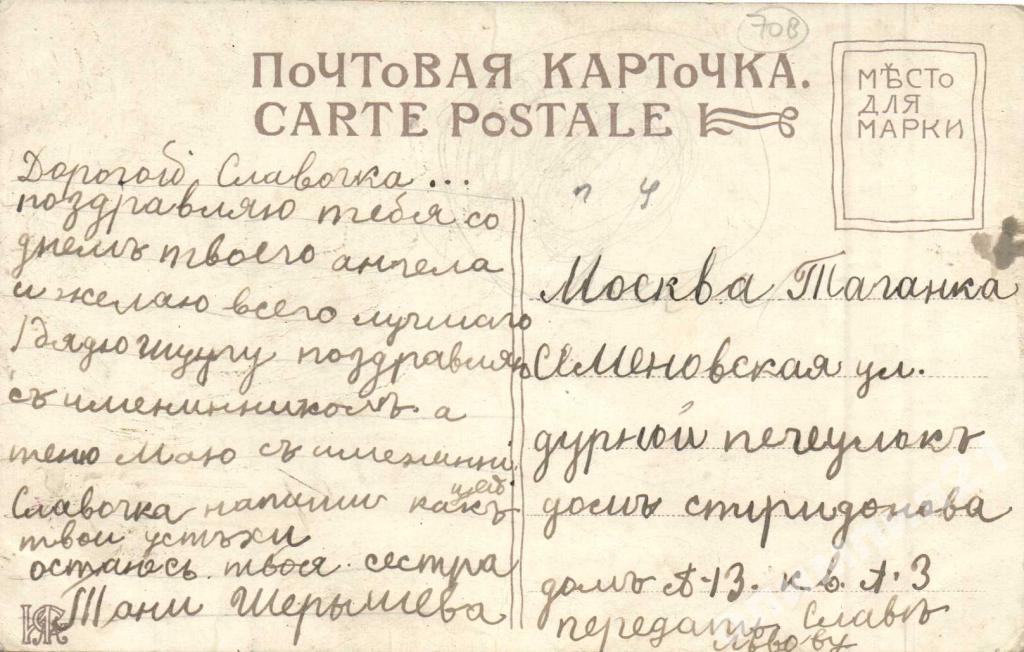 70В
ПОЧТОВАЯ КАРТОЧКА.
CARTE POSTALE
МѢСТО
ДЛЯ
МАРКИ
Дорогой Славочка...
поздравляю тебя со
днемъ твоего ангела
и желаю всего лучшаго
поздравляю
съ именинникомъ. а
тетю Маю съ именинни
цей
Славочка напиши какъ
твои успѣхи
остаюсь твоя сестра
Тани Шерышева
п у
Москва Таганка
Семеновская ул.
дурной печеулокъ
домъ спиридонова
домъ №-13. кв. №.3
передать Славѣ
Львову